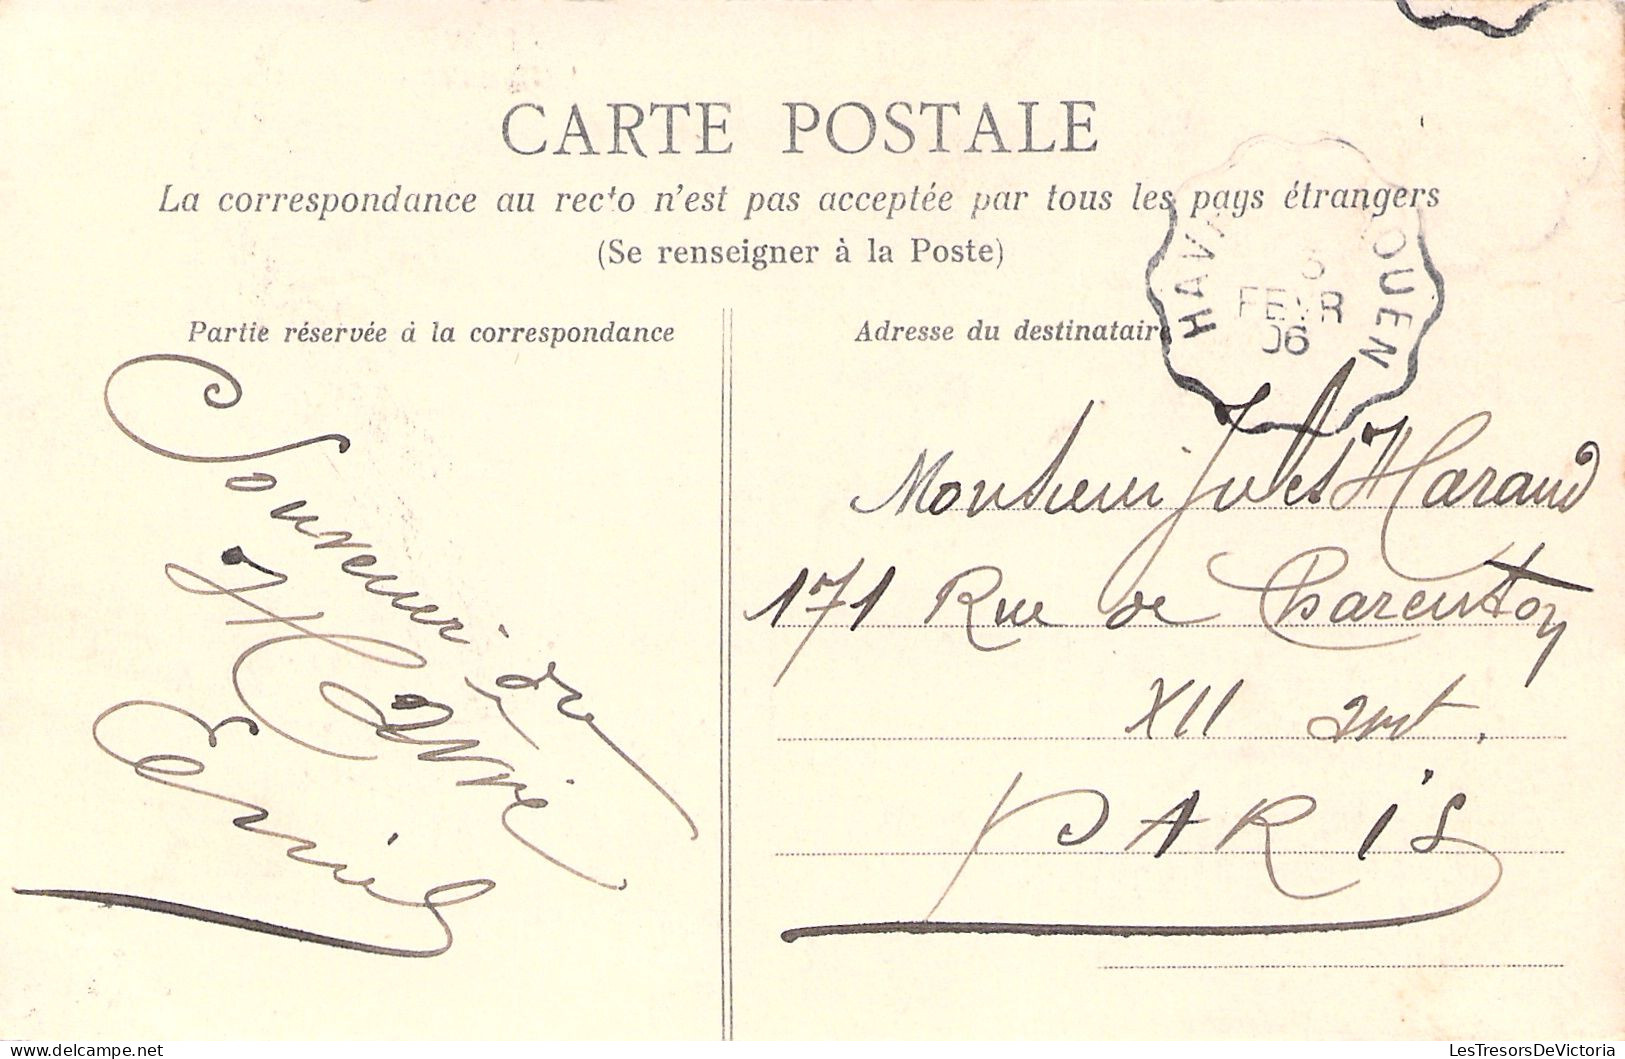 CARTE POSTALE
La correspondance au recto n'est pas acceptée par tous les pays étrangers
(Se renseigner à la Poste)
Partie réservée à la correspondance
Souvenir du
Havre
Emile
Adresse du destinataire
HAV OUEN
FEVR
06
Monsieur Jules Maraud
171 Rue de Charenton
XII arrt.
PARIS
LesTresorsDeVictoria